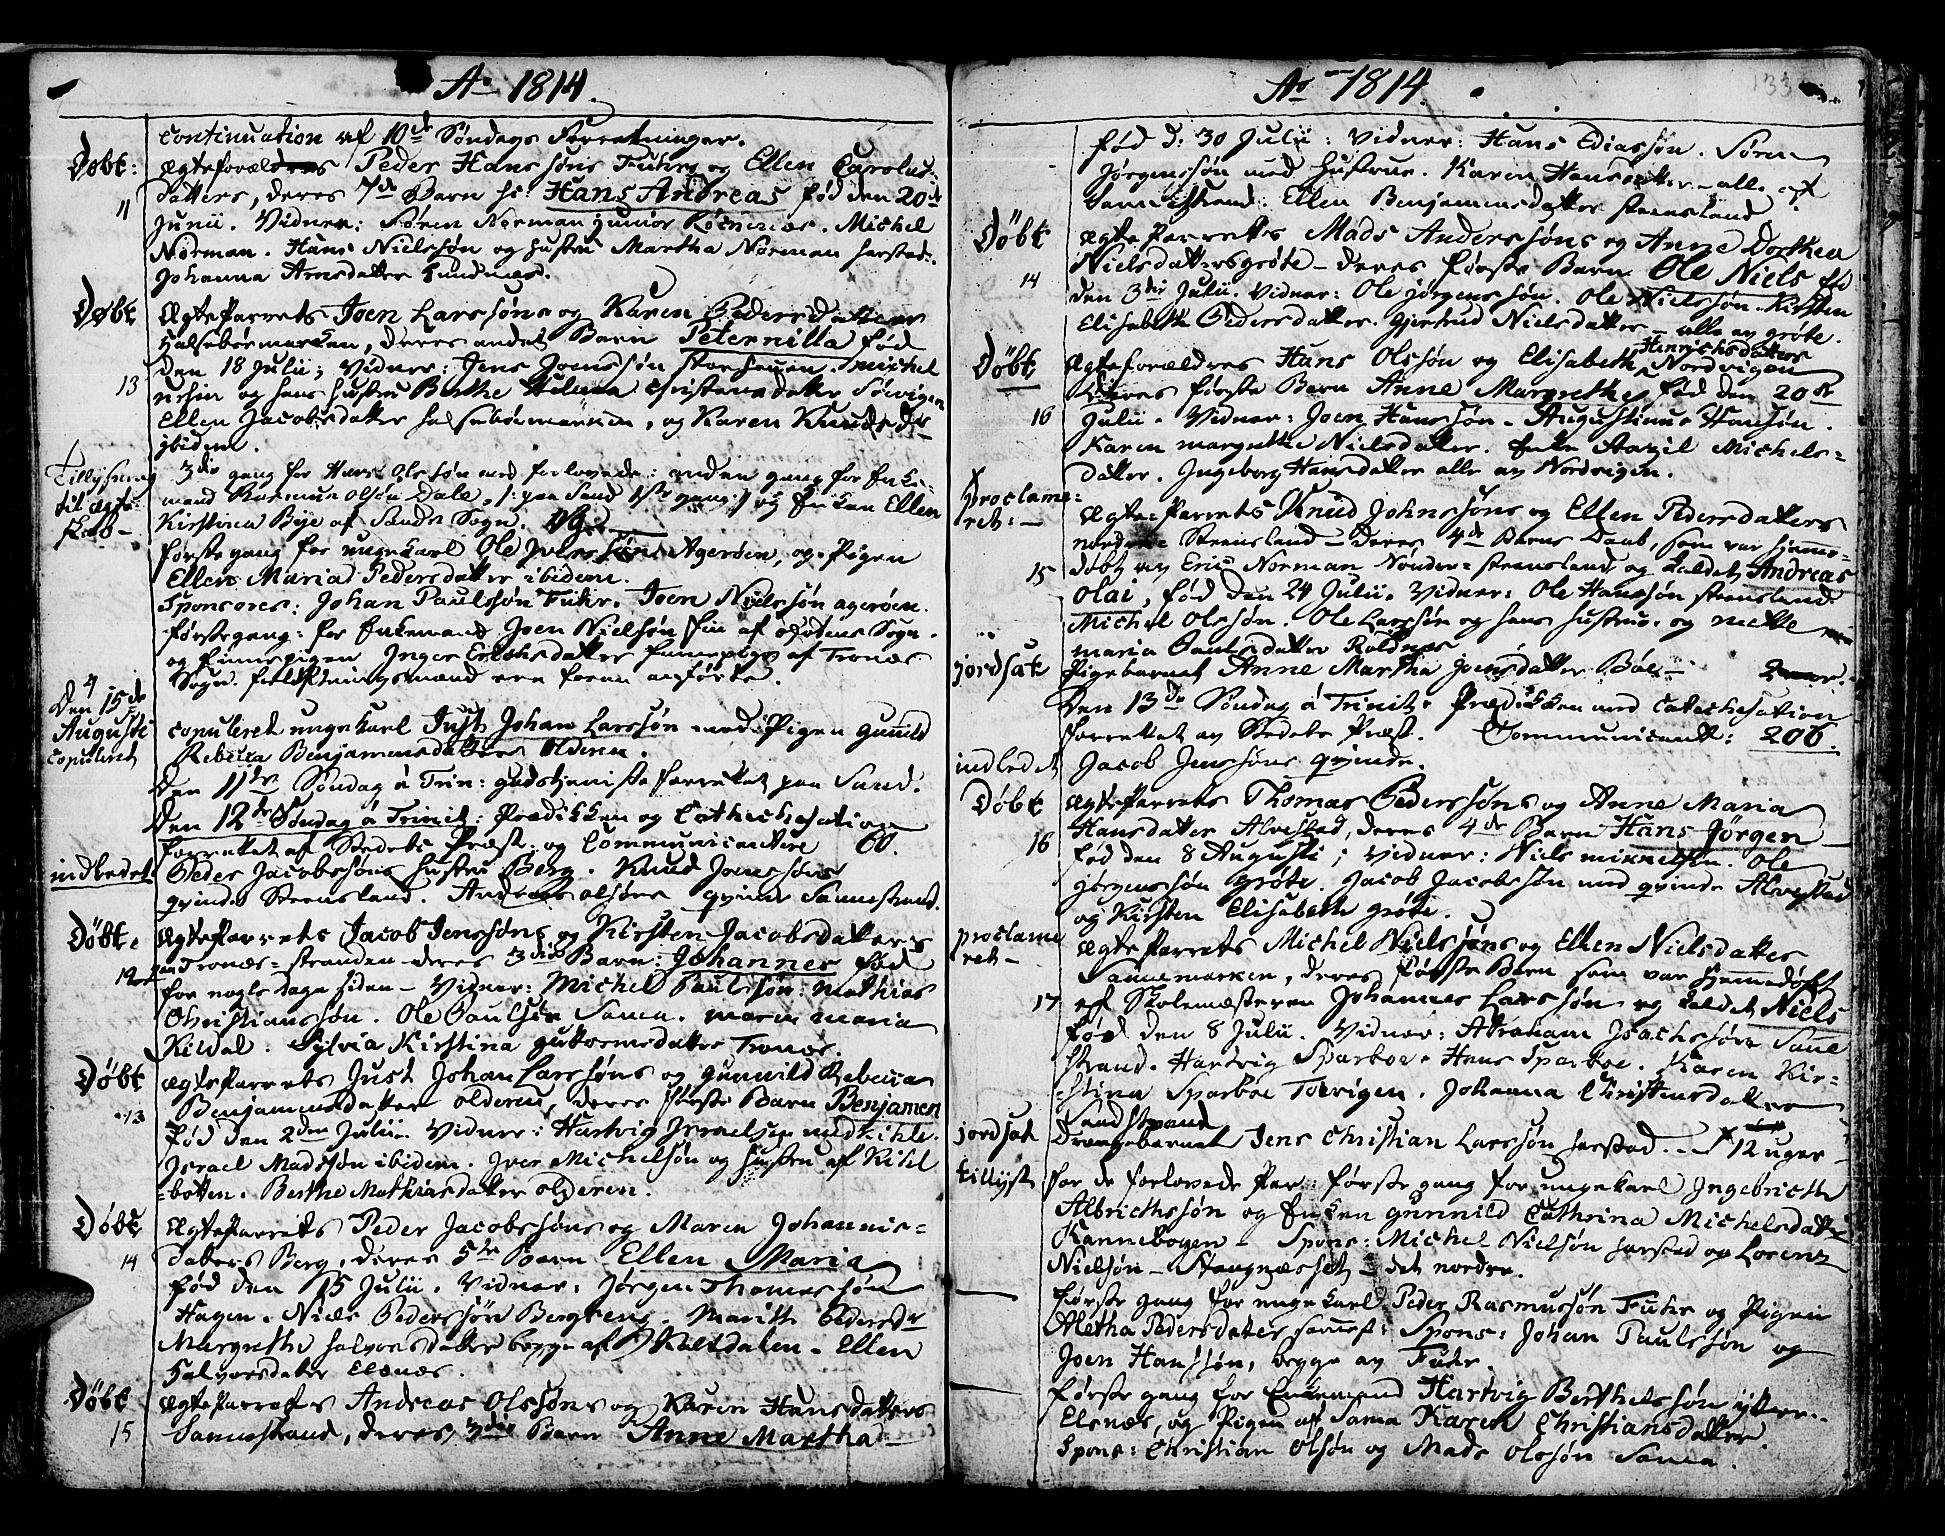 Ao 1814
continuation af 10de Søndags Forretninger.
Døbt: Ægteforældres Peder Hanssøns Fuhr og Ellen Carolus-
datters, deres 7de Barn h: Hans Andreas fød den 20de
11 Junii. Vidner: Søren Norman junior Michel
Norman. Hans Nielssøn og hustru Martha Norman harstad.
Johanna Arnsdatter
Døbt Ægte Parrets Joen Larssøns og Karen Pedersdatters
halsebømarken, deres andet Barn Peternilla fød
den 18 Julii; Vidner: Jens Joenssøn michel
13 og hans hustru Berthe Christensdatter Sørvigen
Ellen Jacobsdatter halsebømarken, og Karen Knudsdr
ibidem.
Tillysning 3die gang for Hans Olssøn med forlovede: anden gang for Enke-
til ægte- mand Rasmus Olsen Dale, /: paa Sand 1ste gang :/ og Enken Ellen
skab - Kirstina Bye af Sands Sogn.
første gang for ungekarl Ole Iverssøn Agerøen, og Pigen
Ellen Maria Pedersdatter ibidem.
Sponsores: Johan Paulssøn Fuhr. Joen Nielssøn agerøen.
første gang: for Enkemand Joen Nielssøn fin af Sogn.
og finnepigen Inger Erichsdatter finnepige af Tronæs
Sogn. forlovningsmænd ere foran anførte.
Den 15de
Augusti copuleret ungekarl Just Johan Larssøn med Pigen Gunnild
copuleret Rebecca Benjaminsdatter olderen.
Den 11te Søndag á Trin: gudstjeniste forrettet paa Sand.
Den 12te Søndag á Trinit: Prædikken og Cathechisation
forrettet af Stedets Præst. og Communicantere 60.
indledet Peder Jacobssøns hustru Berg. Knud Jonssøns
qvinde Steensland. Andreas olsøns qvinde Sannestrand.
Døbt. Ægte Parrets Jacob Jenssøns og Kirsten Jacobsdatters
12 Tronæs-stranden deres 3die Barn: Johannes fød
for nogle dage siden - Vidner: Michel Paulssøn: Mathias
Christianssøn. Ole Paulsen Sama. maria
Kildal. Sylvia Kirstina guttormsdatter Tronæs.
Døbt Ægte Parrets Just Johan Larssøns og Gunnild Rebecca
Benjaminsdatter olderen, deres første Barn Benjamen
13 fød den 2den Julii. Vidner: Hartvig Israelsen
Israel Madssøn ibidem. Iver Michelsøn og hustru af Kihl
=botten. Berthe Mathiasdatter olderen.
Døbt Ægte Parrets Peder Jacobssøns og Maren Johannis-
daters Berg, deres 5te Barn Ellen Maria
14 fød den 15 Julii. Vidner: Jørgen Thomassøn
Hagen. Niels Pederssøn Bergseng. Marith Pedersdr
Margrethe halvorsdatter begge af Kaltdalen - Ellen
Halvorsdatter Elsnæs.
Døbt Ægte Parrets Andreas Olssøns og Karen Hansdatters
15 Sannestrand, deres 3die Barn Anne Martha
Ao 1814. 133
fød d: 30 Julii: Vidner: Hans Ediassøn. Søren
Jørgenssøn med hustrue. Karen Hansdatter - alle af
Sannestrand: Ellen Benjaminsdatter steensland
Døbt Ægte Parrets Mads Anderssøns og Anne Dorthea
Nielsdatters grøte - deres første Barn Ole Niels fød
14 den 3die Julii. Vidner: Ole jørgenssøn. Ole Nielssøn. Kirsten
Elisabeth Pedersdatter. gjertrud Nielsdatter - alle av grøte.
Henrichsdatters
Døbt Ægteforældres Hans Olssøn og Elisabeth Nordvigen
Deres første Barn Anne Margrethe, fød den 20de
16 Julii. Vidner: Joen Hanssøn - Augustinus Hansøn.
Karen margrethe Nielsdatter. Enke Michels-
datter. Ingeborg Hansdatter alle av Nordvigen.
proclame-
ret: - Ægte Parrets Knud Johnssøns og Ellen Pedersdatters
nordre Steensland deres 4de Barns Daab, som var hjemme-
15 døbt av Eric Norman Nondre-steensland og kaldet Andreas
Olai, fød den 24 Julii. Vidner: Ole Hanssøn steensland.
Michel Olssøn. Ole Larssøn og hans hustrue. og mette
maria Paulsdatter Roldnæs
jordsat Pigebarnet Anne Martha joensdatter Bøle
Den 13de Søndag á Trinit: Prædikken med catechesation
forrettet av Stedets Præst. Communicant: 206.
indledet Jacob Jenssøns qvinde.
Døbt Ægte Parrets Thomas Pederssøns og Anne Maria
Hansdatter Alvestad, deres 4de Barn Hans Jörgen
16 fød den 8 Augusti; Vidner: Niels mikkelsen. Ole
jørgenssøn grøte. Jacob Jacobssøn med qvinde Alvestad
og Kirsten Elisabeth grøte.
proclame
ret - Ægte Parrets Michel Nielssøns og Ellen Nielsdatter
Samemarken, deres første Barn som var hjemmedøbt
17 af Skolemesteren Johannes Larssøn og kaldet Niels
fød den 8 Julii. Vidner: Abraham Joachssøn Same
strand. Hartvig Sparboe. Hans Sparboe. Karen Kir-
stina Sparboe Torvigen. Johanna Christensdatter
Sandstrand
jordsat Drengebarnet Jens Christian Larssøn harstad. - 12 uger
tillyst for de forlovede Par: første gang for ungekarl Ingebricth
Albricthssøn og Enken gunnild Cathrina Michelsdatter
Kannebogen - Spons: Michel Nielssøn harstad og Lorentz
Nielsøn - Stangnæsset - det nordre.
første gang for ungekarl Peder Rasmussøn Fuhr og Pigen
Aletha Pedersdatter : Spons: Johan Paulssøn og
Joen Hanssøn, begge av Fuhr.
første gang for Enkemand Hartvig Berthelssøn ytter-
Elsnæs, og Pigen af Sama Karen Christiansdatter
Spons: Christian Olsøn og Mads Olssøn Sama.